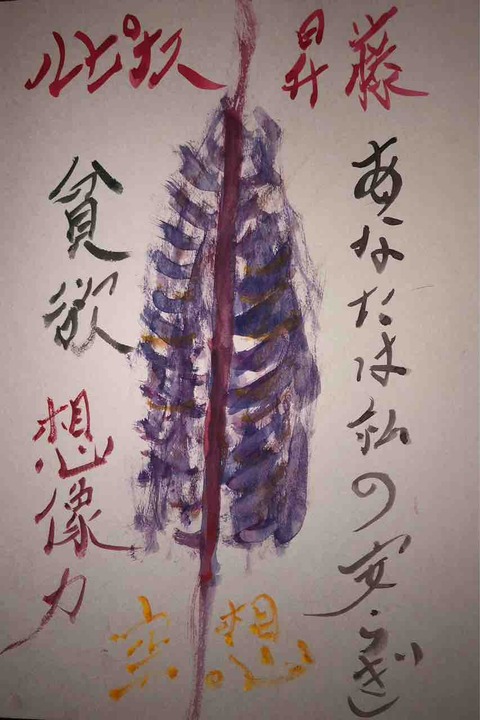 昇藤
ルピナス
あなたは私の安らぎ
貪欲
想像力
空想